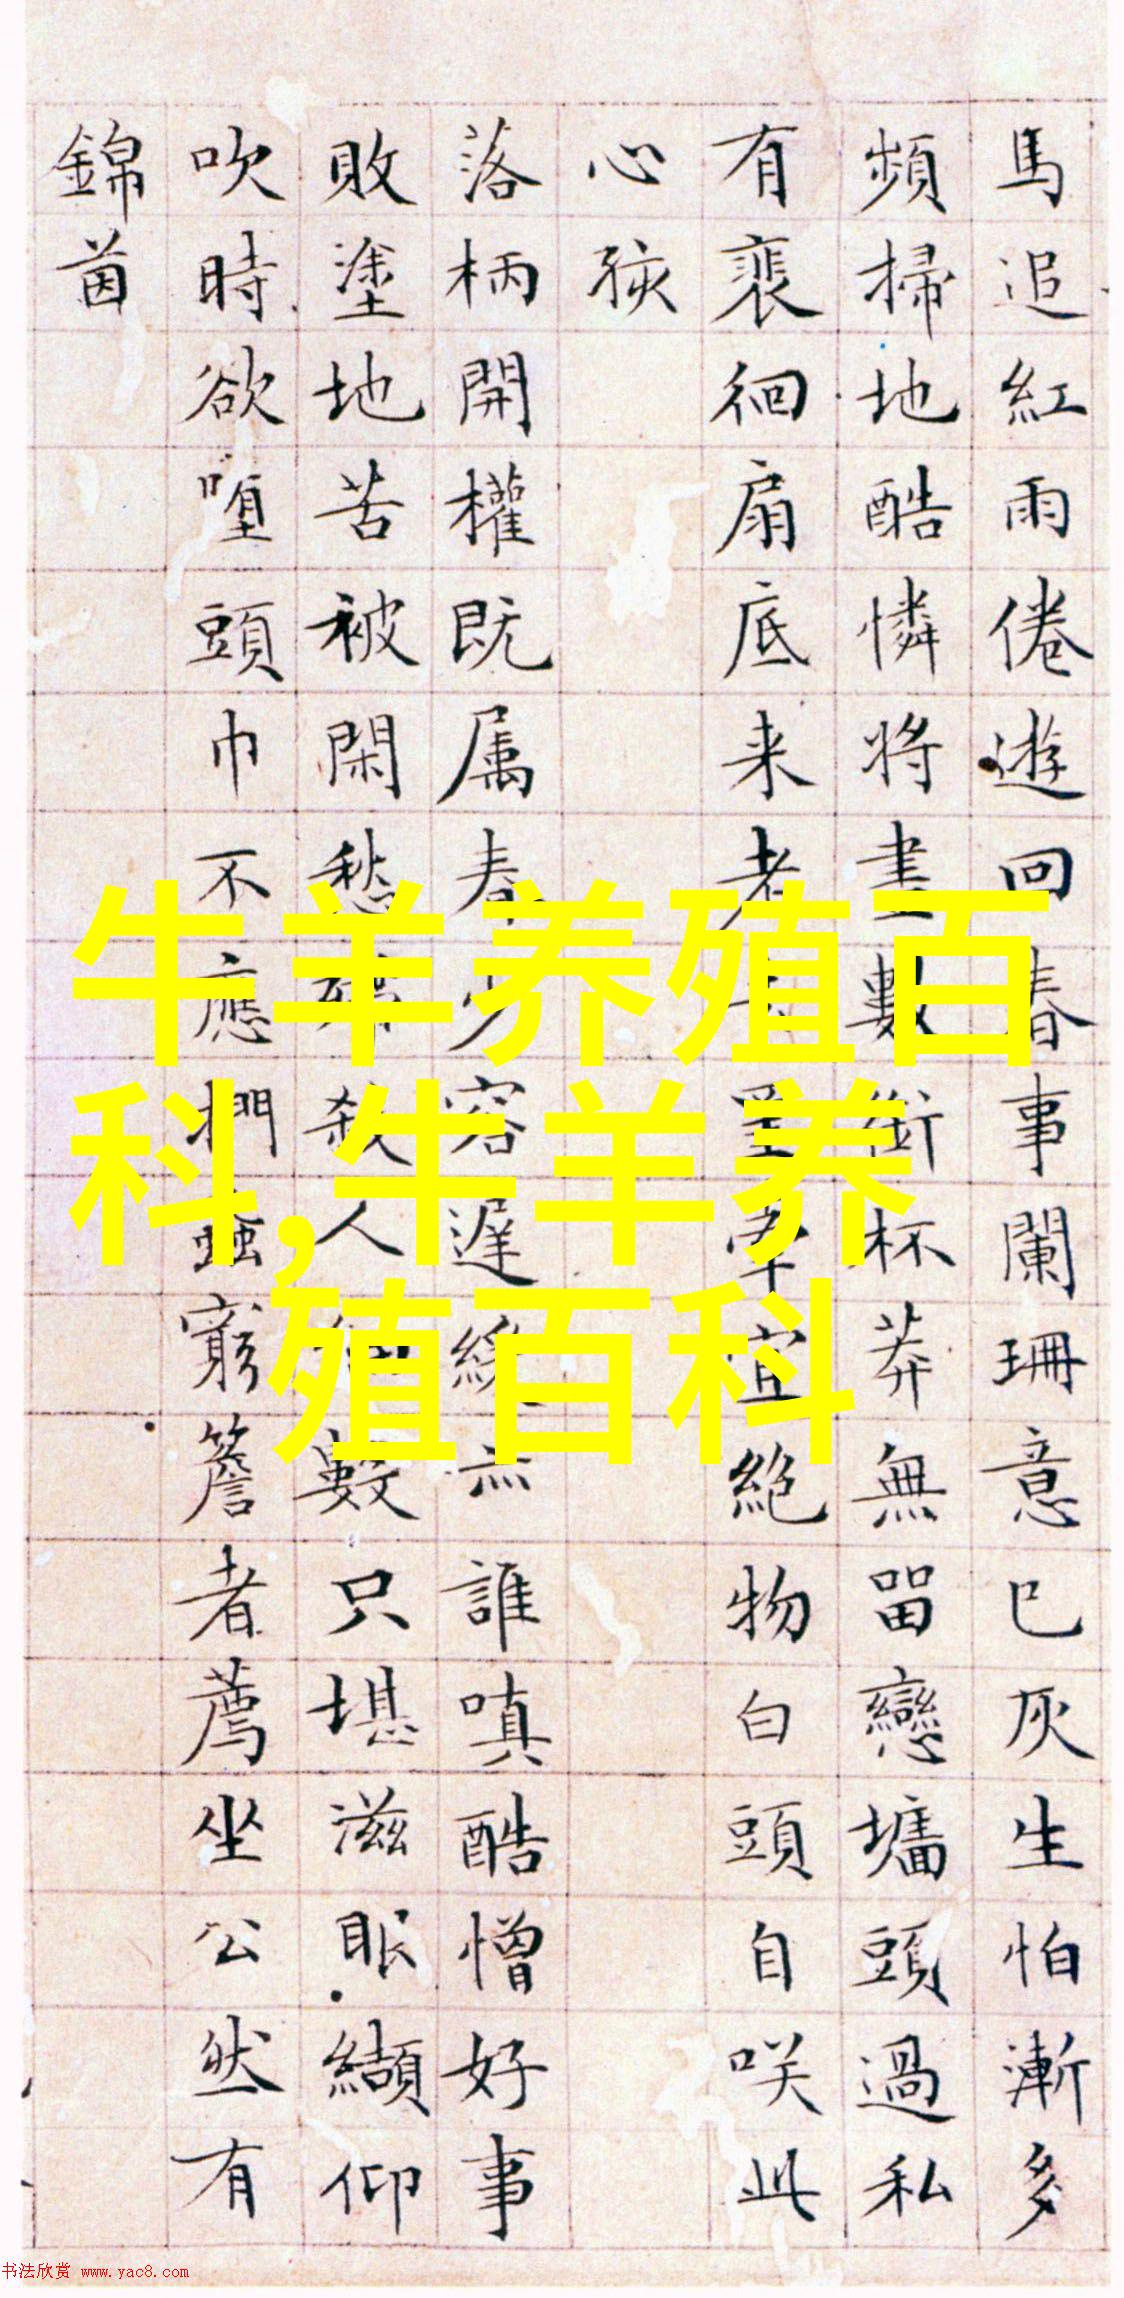 馬追紅雨倦遊回春事闌珊意已灰生怕漸多
頻掃地酷憐將畫數銜杯莽無留戀墻頭過私
有裵徊扇底来老宜絕物白頭自咲此
心孩
落柄開權既属春少容遲誰嗔酷憎好事
敗塗地苦被閑愁殺人數只堪滋眼纈仰
吹時欲頭巾不應捫蝨窮簷者薦坐公然有
錦茵
牛羊养殖百
科,牛羊养
殖百科
书法欣赏 www.yac8.com